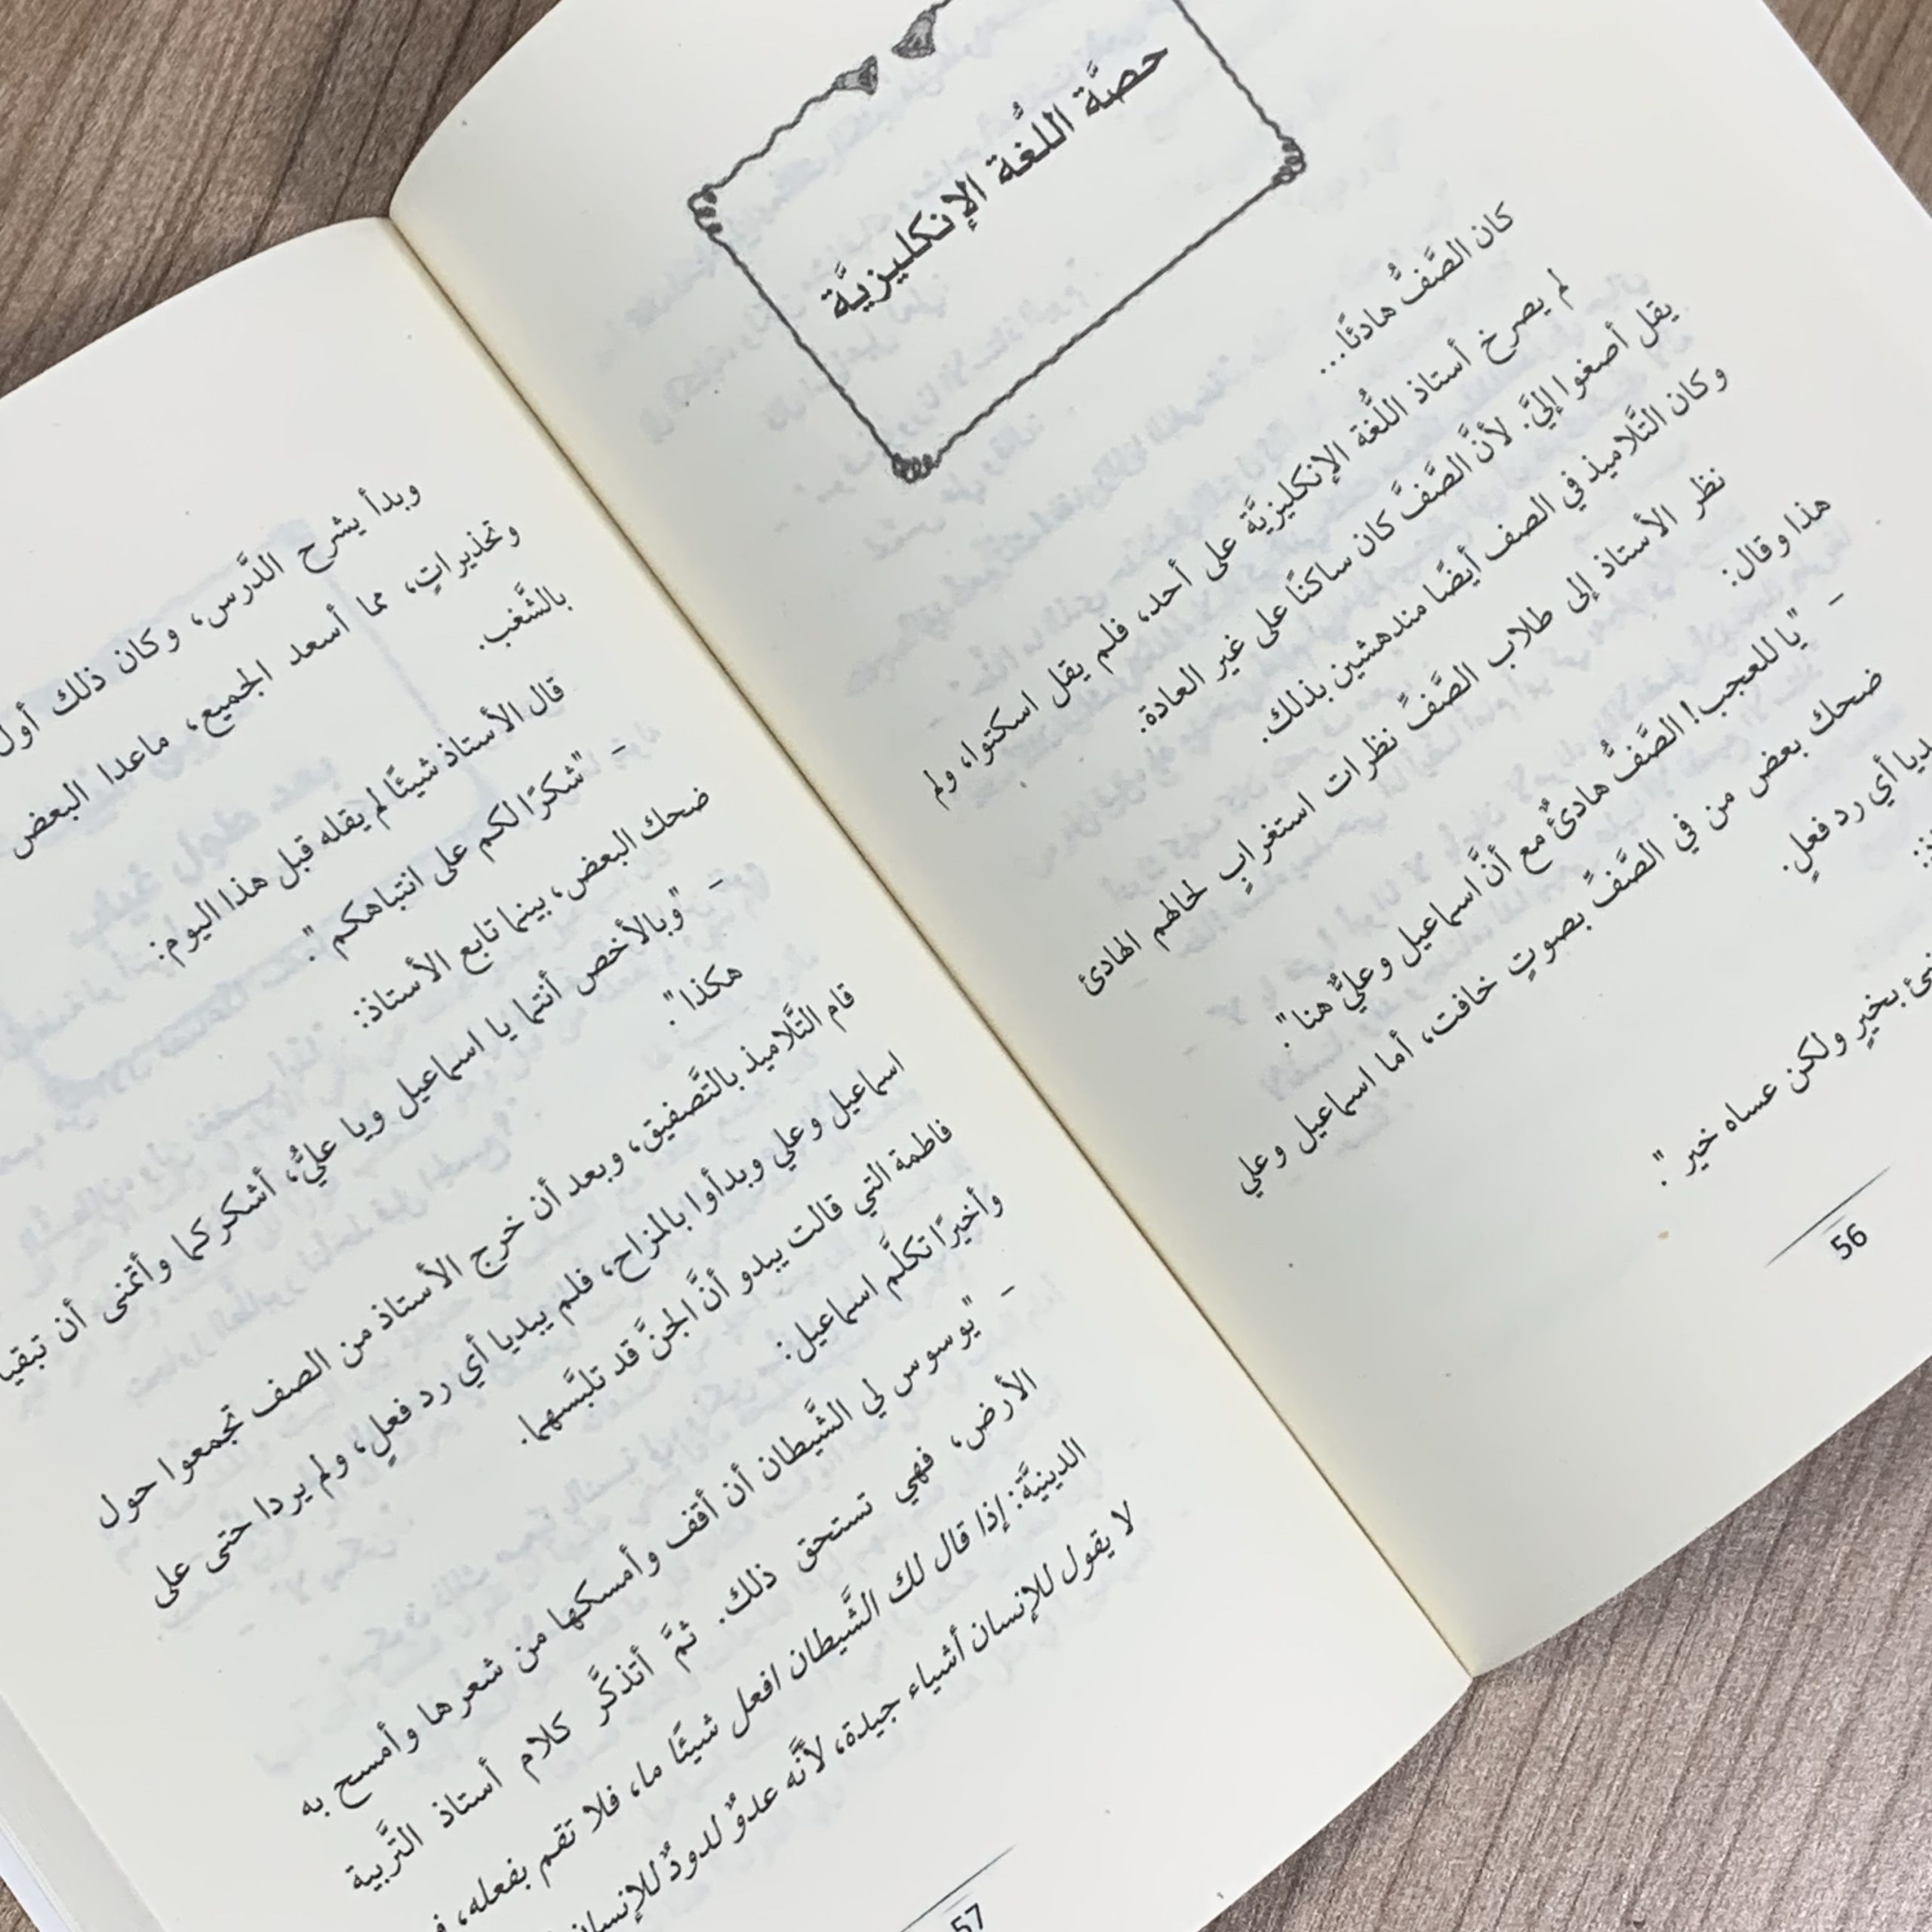 حصَّة اللُّغة الإنكليزيَّة
كان الصَّفُّ هادئًا...
لم يصرخ أستاذ اللُّغة الإنكليزيَّة على أحد، فلم يقل اسكتوا، ولم
يقل أصغوا إليَّ. لأنَّ الصَّفَّ كان ساكنًا على غير العادة.
وكان التَّلاميذ في الصف أيضًا مندهشين بذلك.
نظر الأستاذ إلى طلاب الصَّفِّ نظرات استغرابٍ لحالهم الهادئ
هذا وقال:
– "يا للعجب! الصَّفُّ هادئٌ مع أنَّ اسماعيل وعليٌّ هنا".
ضحك بعض من في الصَّفِّ بصوتٍ خافت، أما اسماعيل وعلي
أي رد فعلٍ.
بخيرٍ ولكن عساه خير".
56
وبدأ يشرح الدَّرس، وكان ذلك
وتحذيراتٍ، مما أسعد الجميع، ماعدا البعض
بالشَّغب.
قال الأستاذ شيئًا لم يقله قبل هذا اليوم:
– "شكرًا لكم على انتباهكم".
ضحك البعض، بينما تابع الأستاذ:
– "وبالأخص أنتما يا اسماعيل ويا عليُّ، أشكركما وأتمنى أن تبقيا
هكذا".
قام التَّلاميذ بالتَّصفيق، وبعد أن خرج الأستاذ من الصف تجمعوا حول
اسماعيل وعلي وبدأوا بالمزاح، فلم يبديا أي رد فعلٍ، ولم يردا حتى على
فاطمة التي قالت يبدو أنَّ الجنَّ قد تلبَّسهما.
وأخيرًا تكلَّم اسماعيل:
– "يوسوس لي الشَّيطان أن أقف وأمسكها من شعرها وأمسح به
الأرض، فهي تستحق ذلك. ثمَّ أتذكَّر كلام أستاذ التَّربية
الدينيَّة: إذا قال لك الشَّيطان افعل شيئًا ما، فلا تقم بفعله،
لا يقول للإنسان أشياء جيدة، لأنَّه عدوٌّ لدودٌ للإنسان
57